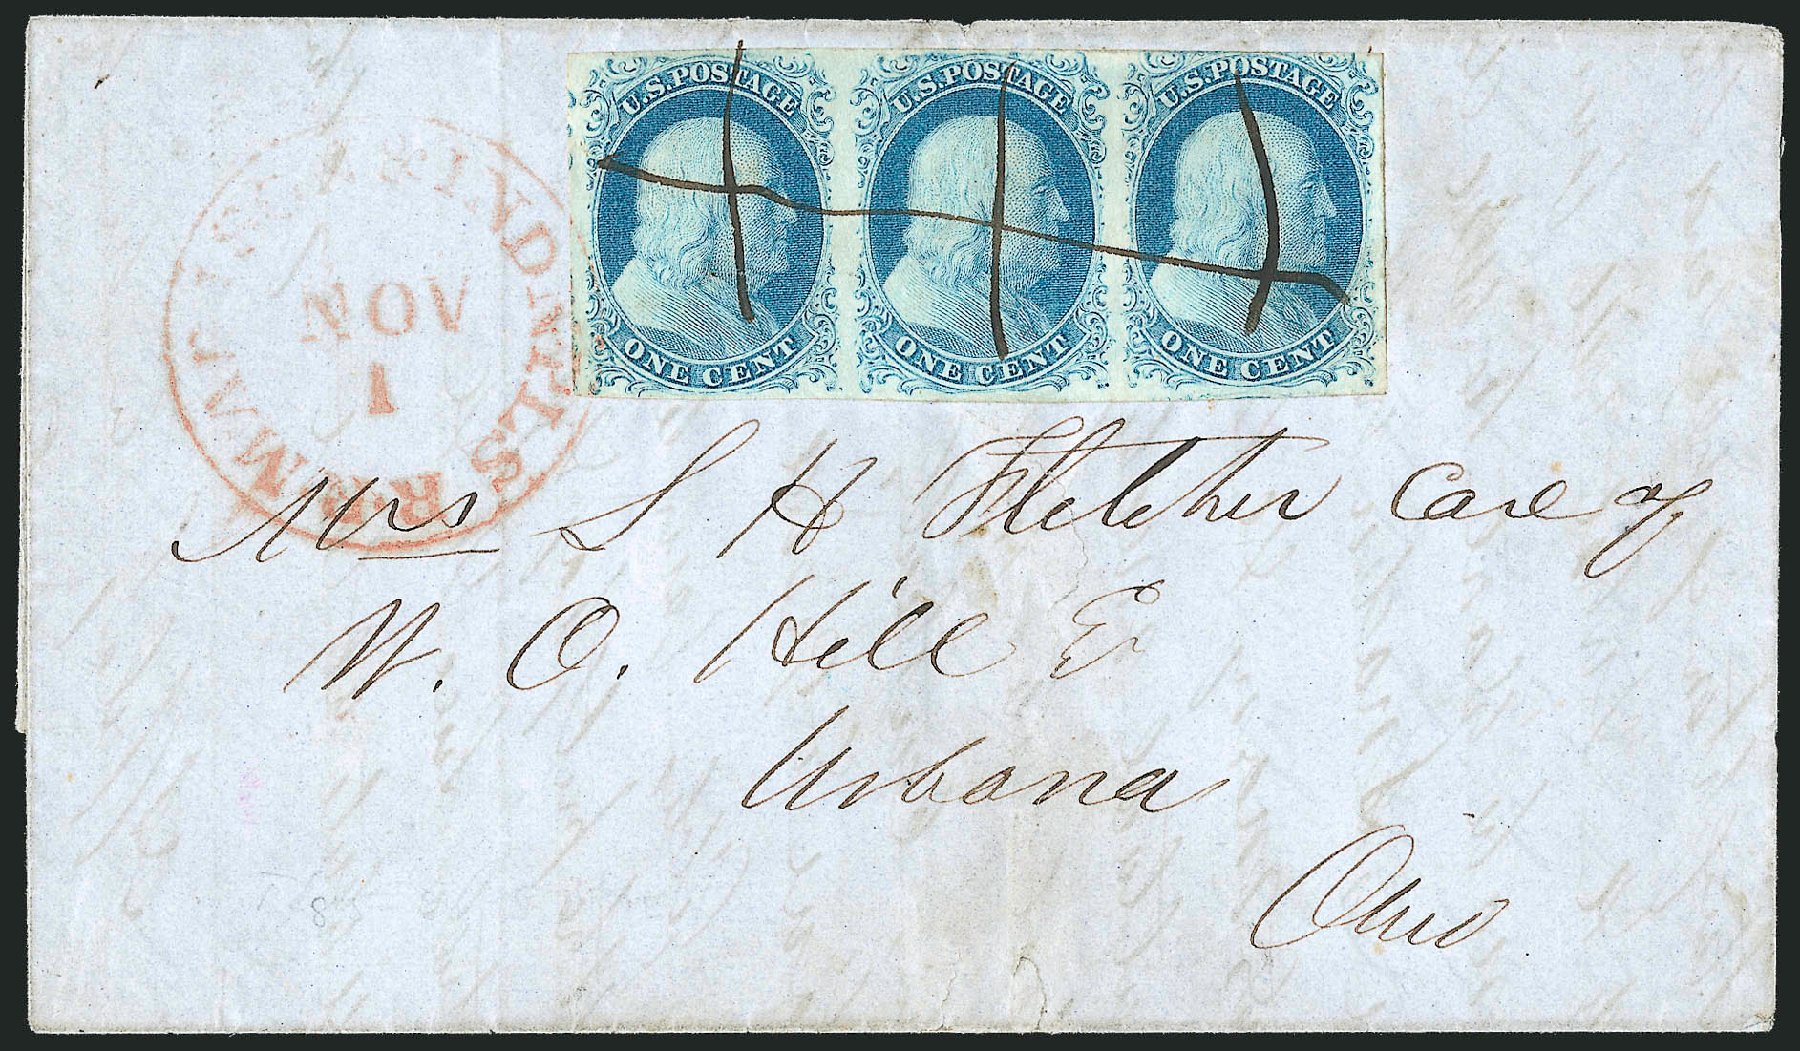 U.S. POSTAGE U.S. POSTAGE U.S. POSTAGE
ONE CENT ONE CENT ONE CENT
NOV
1
Mrs S H Fletcher Care of
W. O. Hill
Urbana
Ohio
8